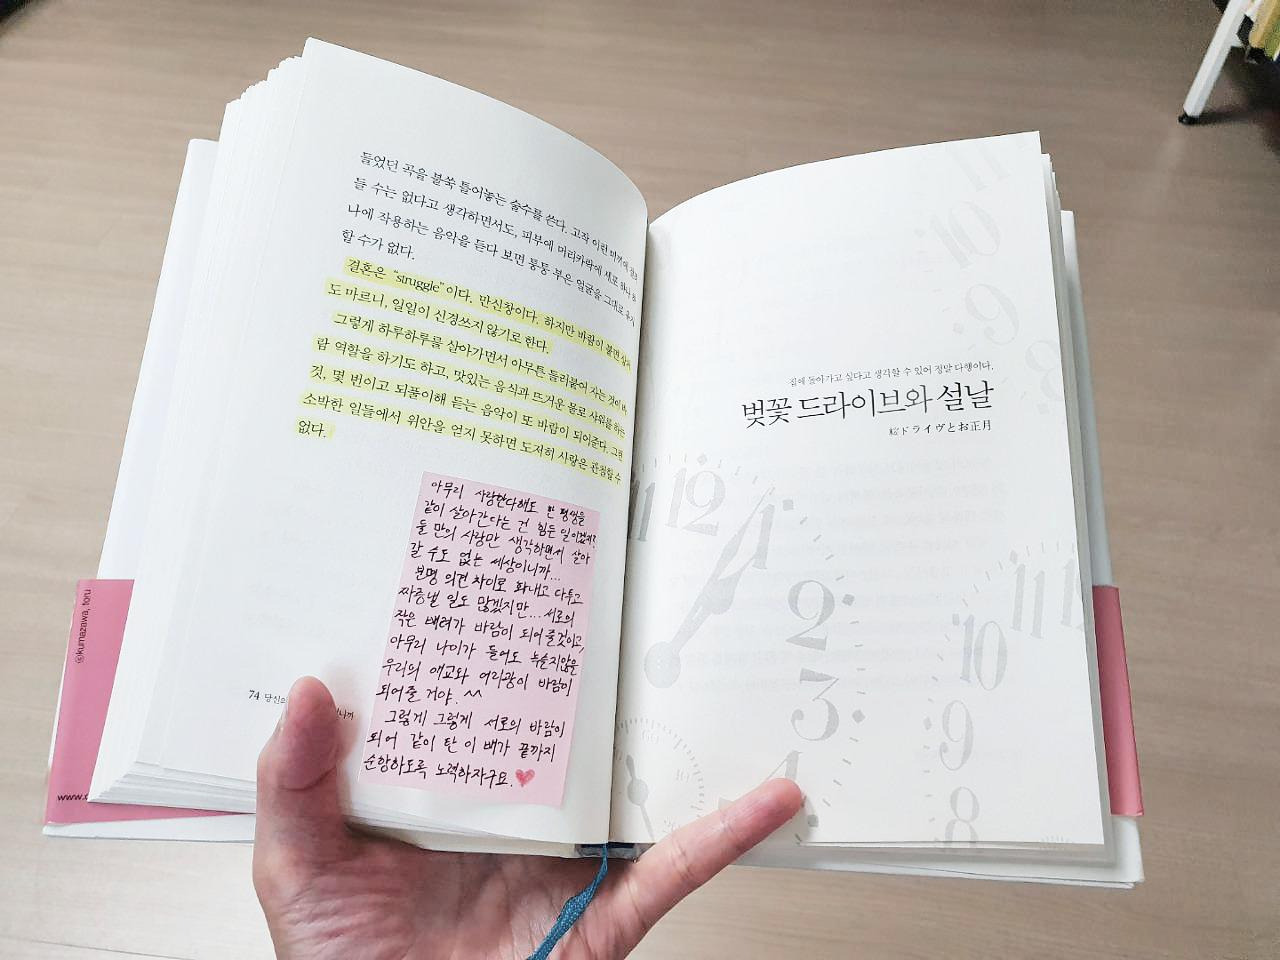 들었던 곡을 불쑥 틀어놓는 술수를 쓴다. 고작 이런 미끼에
들 수는 없다고 생각하면서도, 피부에 머리카락에 세포 하나 하
나에 작용하는 음악을 듣다 보면 퉁퉁 부은 얼굴을 그대로 유지
할 수가 없다.
결혼은 “struggle”이다. 만신창이다. 하지만 바람이 불면 상처
도 마르니, 일일이 신경쓰지 않기로 한다.
그렇게 하루하루를 살아가면서 아무튼 들러붙어 자는 것이 바
람 역할을 하기도 하고, 맛있는 음식과 뜨거운 물로 샤워를 하는
것, 몇 번이고 되풀이해 듣는 음악이 또 바람이 되어준다. 그런
소박한 일들에서 위안을 얻지 못하면 도저히 사랑은 관철할 수
없다.
아무리 사랑한다해도 한 평생을
같이 살아간다는 건 힘든 일이겠지?
둘 만의 사랑만 생각하면서 살아
갈 수도 없는 세상이니까...
분명 의견 차이로 화내고 다투고
짜증낼 일도 많겠지만... 서로의
작은 배려가 바람이 되어 줄것이고,
아무리 나이가 들어도 녹슬지않을
우리의 애교와 여러광이 바람이
되어줄 거야. ^^
그렇게 그렇게 서로의 바람이
되어 같이 탄 이 배가 끝까지
순항하도록 노력하자구요. ♥
74 당신의
니까
©kumazawa, toru
www.
집에 돌아가고 싶다고 생각할 수 있어 정말 다행이다.
벚꽃 드라이브와 설날
桜ドライヴとお正月
11
10
9
8
11 12 1
2
3
4
11
10
9
8
60
10